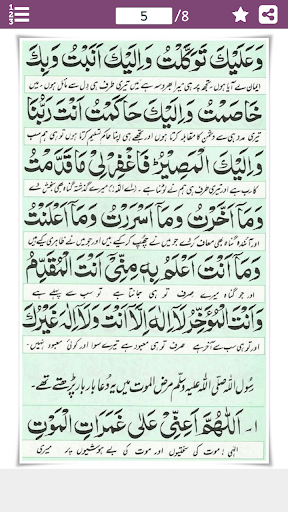 5 /8
وَعَلَيْكَ تَوَكَّلْتُ وَاِلَيْكَ اَنَبْتُ وَبِكَ
ایمان لے آیا ہوں تجھ پر ہی میرا بھروسہ ہے میں تیری طرف ہی دل سے مائل ہوں میں
خَاصَمْتُ وَاِلَيْكَ حَاكَمْتُ اَنْتَ رَبُّنَا
تیری مدد ہی سے دشمن کا مقابلہ کرتا ہوں اور تجھے ہی اپنا حاکم تسلیم کرتا ہوں تو ہی ہم سب
وَاِلَيْكَ الْمَصِيْرُ فَاغْفِرْ لِىْ مَا قَدَّمْتُ
کا رب ہے اور تیری طرف ہی ہم نے لوٹنا ہے میرے گذشتہ گناہ بھی بخش دے
وَمَآ اَخَّرْتُ وَمَآ اَسْرَرْتُ وَمَآ اَعْلَنْتُ
اور آئندہ گناہ بھی معاف کردے جو میں نے چھپ کر کیے ہیں اور جو میں نے ظاہری کیے ہیں
وَمَآ اَنْتَ اَعْلَمُ بِهٖ مِنِّىْٓ اَنْتَ الْمُقَدِّمُ
اور جو گناہ میرے صرف تو ہی جانتا ہے تو سب سے پہلے ہے
وَاَنْتَ الْمُؤَخِّرُ لَآ اِلٰهَ اِلَّآ اَنْتَ وَلَآ اِلٰهَ غَيْرُكَ
اور تو ہی سب سے آخر ہے صرف تو ہی معبود ہے تیرے سوا اور کوئی معبود نہیں
رسول اللہ صلی اللہ علیہ وسلم مرض الموت میں یہ دعا بار بار پڑھتے تھے
۱۔ اَللّٰهُمَّ اَعِنِّىْ عَلٰى غَمَرَاتِ الْمَوْتِ
الٰہی! موت کی سختیوں اور موت کی بے ہوشیوں پر میری